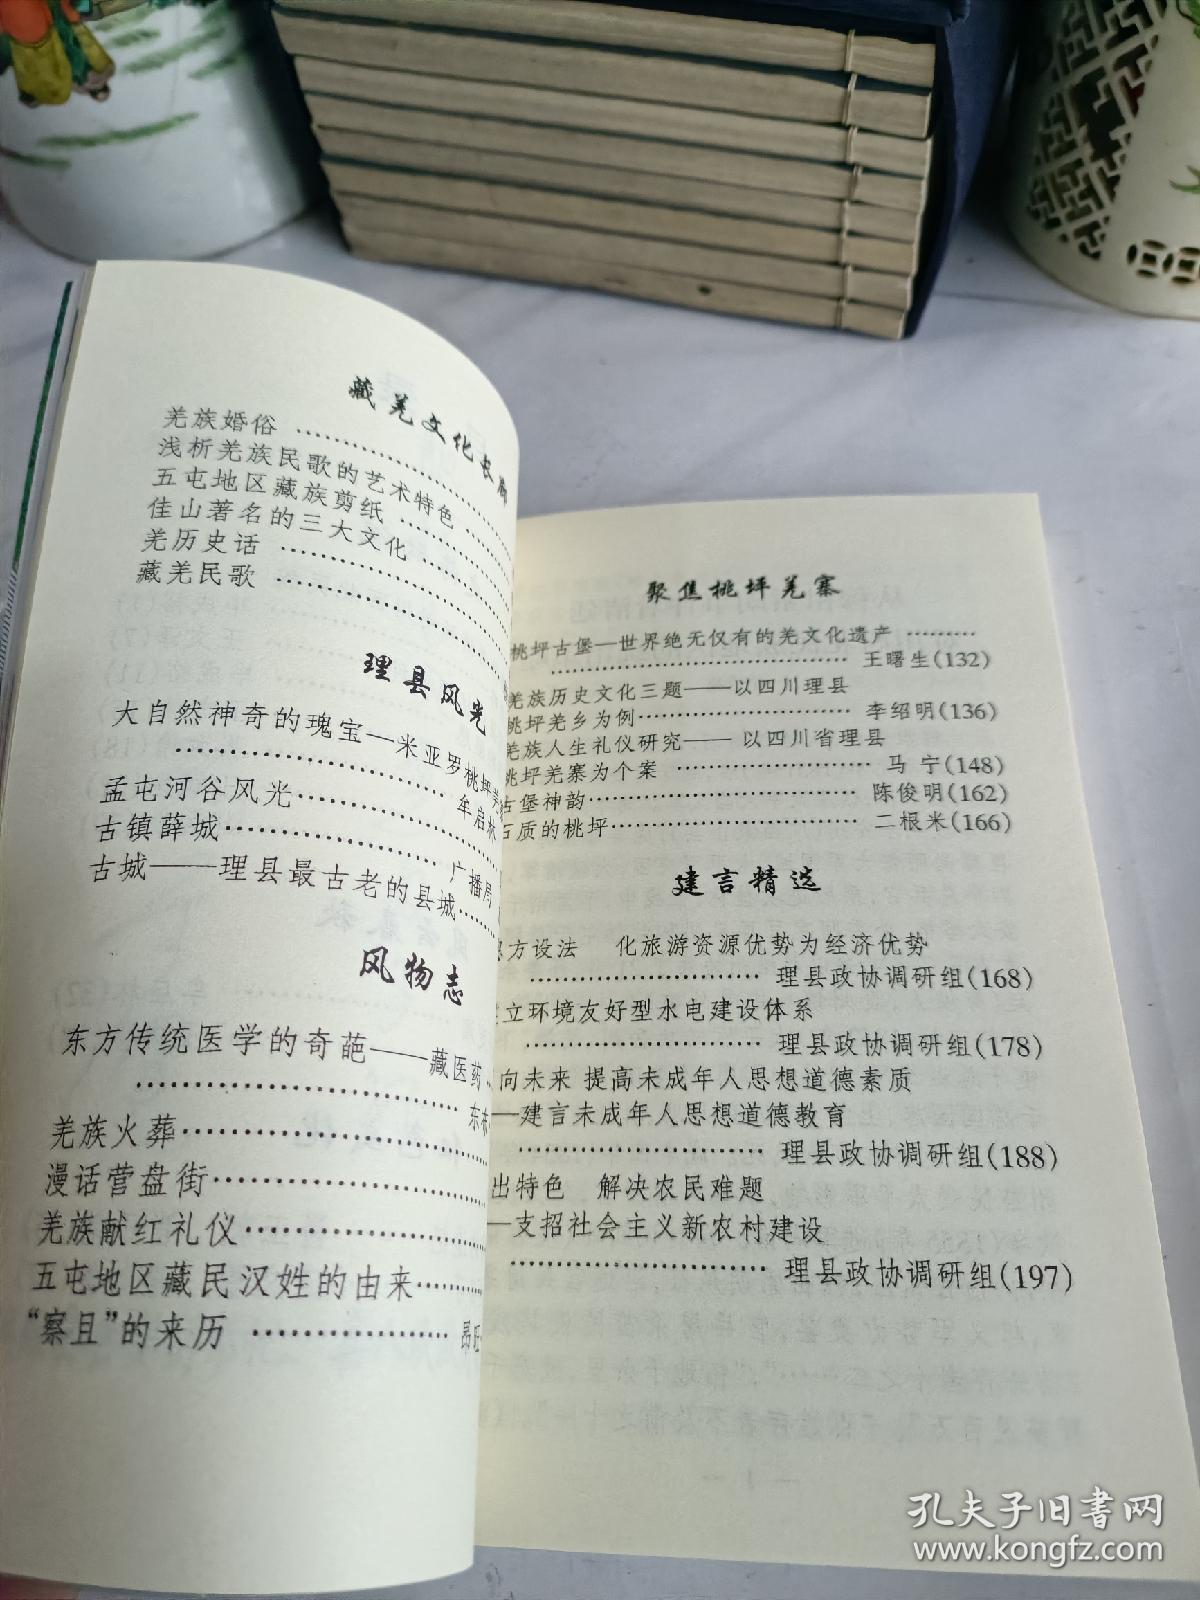 藏羌文化长廊
羌族婚俗 ……………
浅析羌族民歌的艺术特色 ……
五屯地区藏族剪纸 ………
佳山著名的三大文化 ………
羌历史话 ……………
藏羌民歌 ……………
理县风光
大自然神奇的瑰宝—米亚罗桃坪
………………………… 牟启
孟屯河谷风光……………
古镇薛城……………… 广播局
古城——理县最古老的县城……
风物志
东方传统医学的奇葩——藏医药
…………………………
羌族火葬……………………
漫话营盘街…………………
羌族献红礼仪………………
五屯地区藏民汉姓的由来……
“察且”的来历 ……………… 昂旺
聚焦桃坪羌寨
桃坪古堡—世界绝无仅有的羌文化遗产 ………
………………………… 王曙生(132)
羌族历史文化三题——以四川理县
桃坪羌乡为例………………… 李绍明(136)
羌族人生礼仪研究—— 以四川省理县
桃坪羌寨为个案 ……………… 马 宁(148)
古堡神韵……………………… 陈俊明(162)
石质的桃坪…………………… 二根米(166)
建言精选
方设法 化旅游资源优势为经济优势
…………………… 理县政协调研组(168)
立环境友好型水电建设体系
…………………… 理县政协调研组(178)
向未来 提高未成年人思想道德素质
—建言未成年人思想道德教育
…………………… 理县政协调研组(188)
出特色 解决农民难题
—支招社会主义新农村建设
…………………… 理县政协调研组(197)
孔夫子旧书网
www.kongfz.com